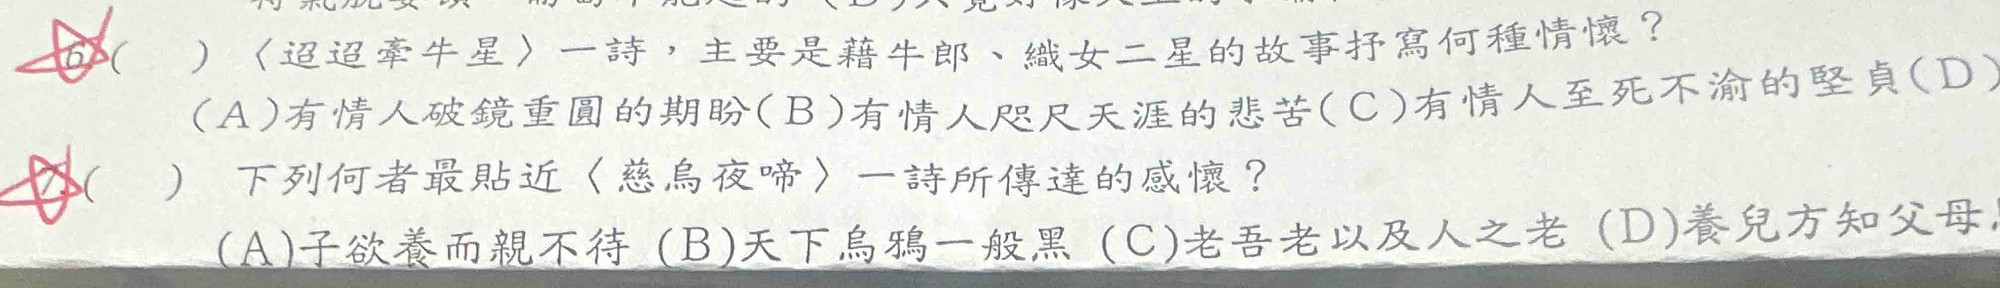 6.( ) 〈迢迢牽牛星〉一詩,主要是藉牛郎、織女二星的故事抒寫何種情懷?
(A)有情人破鏡重圓的期盼(B)有情人咫尺天涯的悲苦(C)有情人至死不渝的堅貞(D)
7.( ) 下列何者最貼近〈慈烏夜啼〉一詩所傳達的感懷?
(A)子欲養而親不待 (B)天下烏鴉一般黑 (C)老吾老以及人之老 (D)養兒方知父母